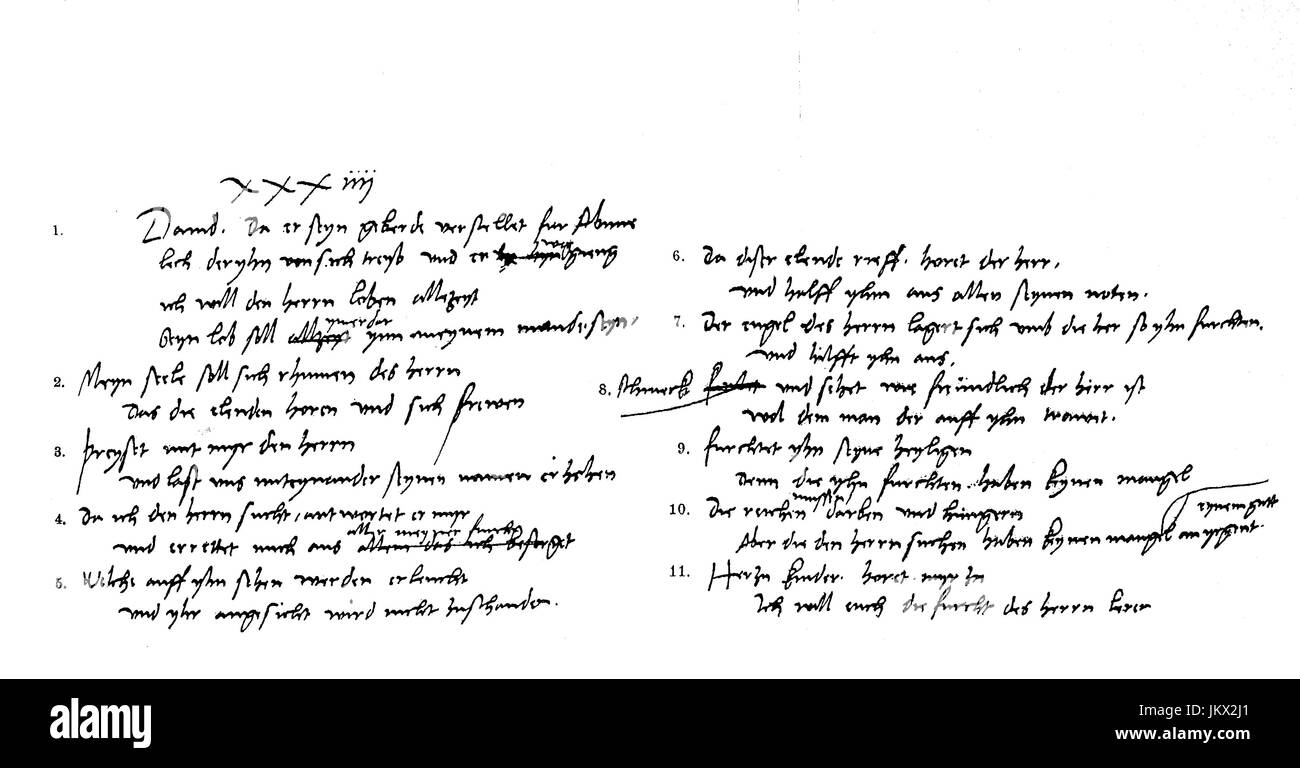 XXXiiij
1. David. Da er seyn geberde verstellet fur Abime
lech der yhn von sich treyb und er weg gieng
ich will den herrn loben allezeyt
Seyn lob soll allzeyt ymerdar ynn meynem munde seyn.
2. Meyn seele soll sich rhumen des herrn
das die elenden horen und sich frewen
3. Preyset mit myr den herrn
und last uns miteynander seynen namen erhohen
4. Da ich den herrn sucht, antwortet er myr
und errettet mich aus allem das ich besorget aller meyner furcht
5. Welche auff yhn sehen werden erleucht
und yhr angesicht wird nicht zuschanden.
6. Da diser elende rieff. horet der herr,
und halff yhm aus allen seynen noten.
7. Der engel des herrn lagert sich umb die her so yhn furchten,
und hilfft yhn aus,
8. schmeckt und sehet wie freundlich der herr ist
wol dem man der auff yhn trawet.
9. furchtet yhn seyne heyligen
Denn die yhn furchten haben keynen mangel
10. Die reichen mussen darben und hungern
Aber die den herrn suchen haben keynen mangel an yrgent eynem gutt
11. Her zu kinder. horet myr zu
Ich will euch die furcht des herrn leren
alamy
alamy
Image ID: JKX2J1
www.alamy.com